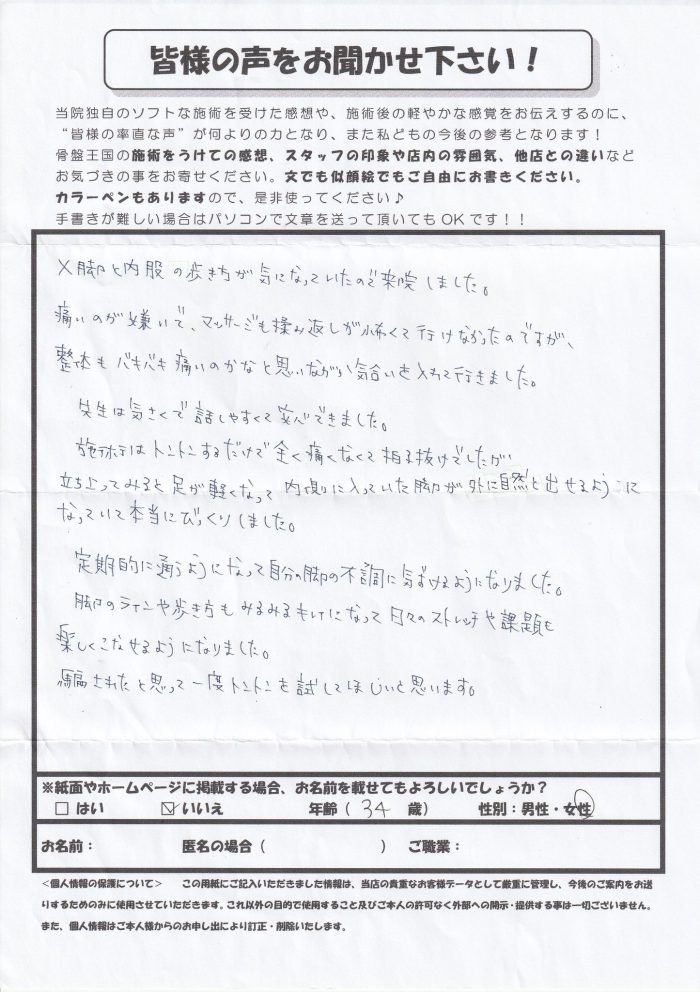 皆様の声をお聞かせ下さい！
当院独自のソフトな施術を受けた感想や、施術後の軽やかな感覚をお伝えするのに、
“皆様の率直な声”が何よりの力となり、また私どもの今後の参考となります！
骨盤王国の施術をうけての感想、スタッフの印象や店内の雰囲気、他店との違いなど
お気づきの事をお寄せください。文でも似顔絵でもご自由にお書きください。
カラーペンもありますので、是非使ってください♪
手書きが難しい場合はパソコンで文章を送って頂いてもOKです！！
X脚と内股の歩き方が気になっていたので来院しました。
痛いのが嫌いで、マッサージも揉み返しが怖くて行けなかったのですが、
整体もバキバキ痛いのかなと思いながら気合いを入れて行きました。
先生は気さくで話しやすくて安心できました。
施術はトントンするだけで全く痛くなくて拍子抜けでしたが
立ち上ってみると足が軽くなって内側に入っていた脚が外に自然と出せるように
なっていて本当にびっくりしました。
定期的に通うようになって自分の脚の不調に気づけるようになりました。
脚のラインや歩き方もみるみるキレイになって日々のストレッチや課題も
楽しくこなせるようになりました。
騙されたと思って一度トントンを試してほしいと思います。
※紙面やホームページに掲載する場合、お名前を載せてもよろしいでしょうか？
□はい ☑いいえ 年齢（ 34 歳） 性別：男性・女性
お名前： 匿名の場合（ ） ご職業：
＜個人情報の保護について＞ この用紙にご記入いただきました情報は、当店の貴重なお客様データとして厳重に管理し、今後のご案内をお送
りするためのみに使用させていただきます。これ以外の目的で使用すること及びご本人の許可なく外部への開示・提供する事は一切ございません。
また、個人情報はご本人様からのお申し出により訂正・削除いたします。